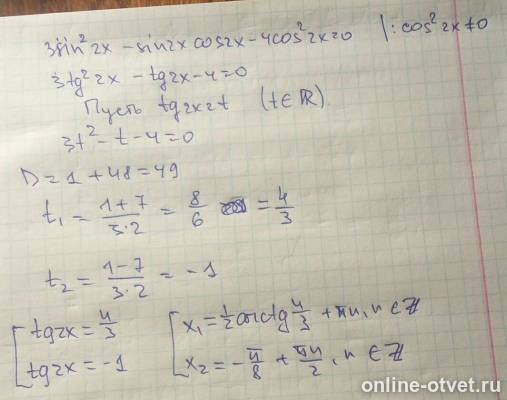 3sin²2x - sin2x cos2x - 4cos²2x=0 |: cos²2x≠0
3tg²2x - tg2x - 4=0
Пусть tg2x=t (t∈ℝ)
3t² - t - 4=0
D=1+48=49
t₁ = (1+7)/(3·2) = 8/6 = 4/3
t₂ = (1-7)/(3·2) = -1
[ tg2x = 4/3 [ x₁ = 1/2 arctg 4/3 + πn, n∈ℤ
tg2x = -1 x₂ = -π/8 + πn/2, n∈ℤ
online-otvet.ru